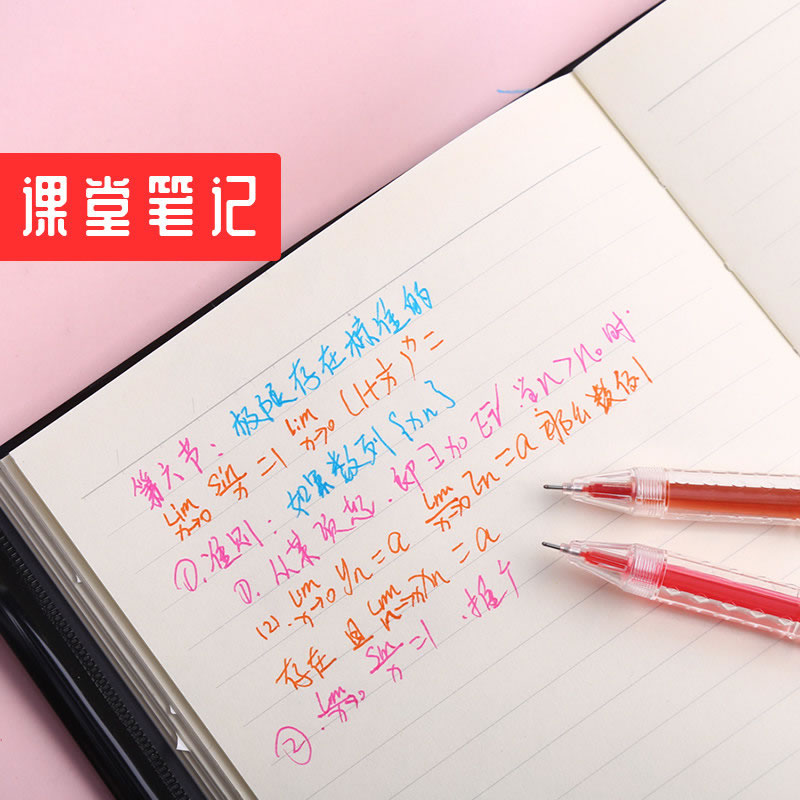 课堂笔记
第六节：极限存在标准的
lim x→0 sin/x =1 lim x→0 (1+x)^x =
①.准则：如果数列{xn}
①.从某项起.即∃n0∈N.当n>n0时.
(2).lim x→0 yn=a lim x→0 Zn=a 那么数列
存在且lim n→ xn=a
②.lim x→0 sin/x =1.推个